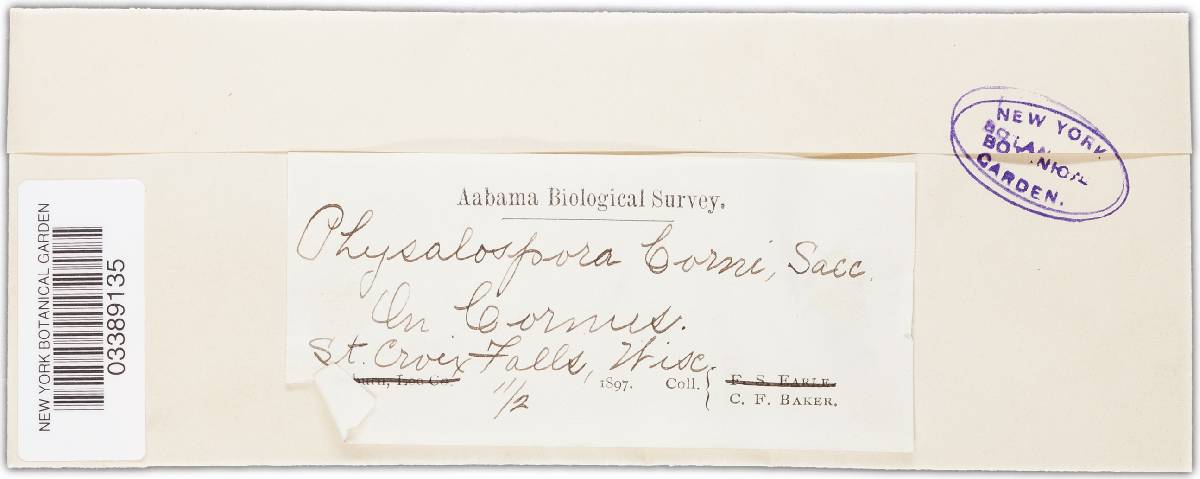 NEW YORK
BOTANICAL
GARDEN.
NEW YORK BOTANICAL GARDEN
03389135
Aabama Biological Survey.
Physalospora Corni, Sacc.
On Cornus.
St. Croix Falls, Wisc.
Lee Co.
11/2 1897. Coll. F. S. EARLE.
C. F. BAKER.